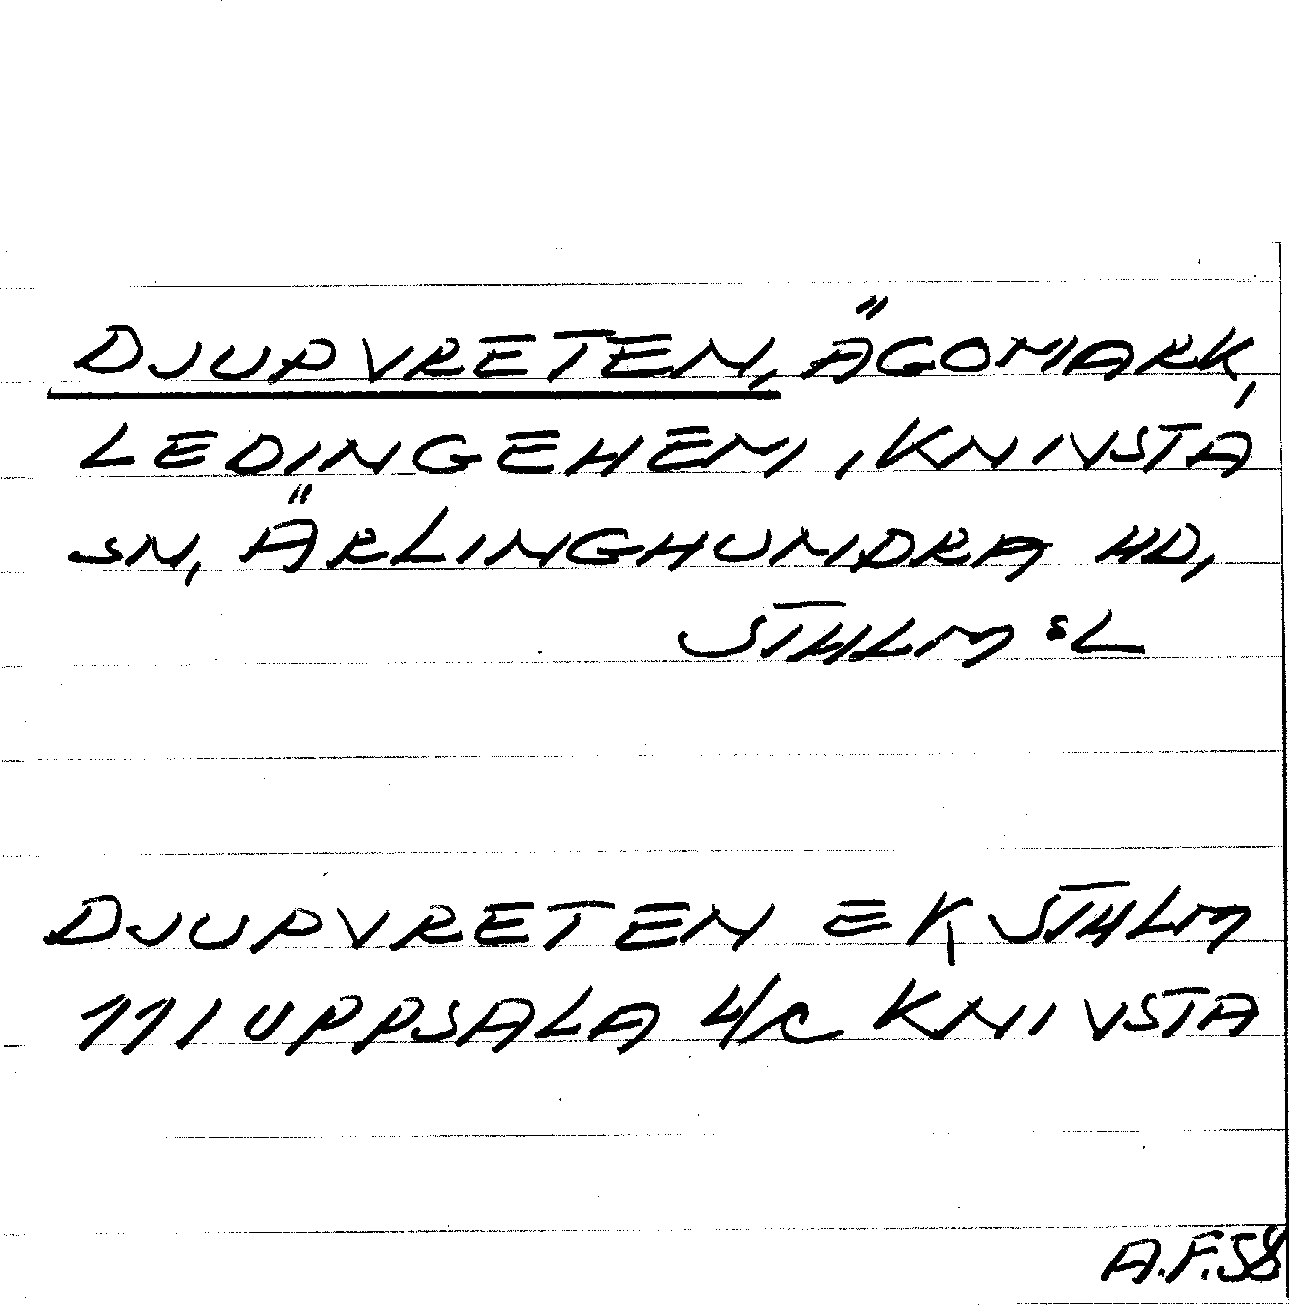 DJUPVRETEN, ÄGOMARK,
LEDINGEHEM, KNIVSTA
SN, ÄRLINGHUNDRA HD,
STHLM:SL
DJUPVRETEN EK STHLM
111 UPPSALA 4/C KNIVSTA
A.F.58